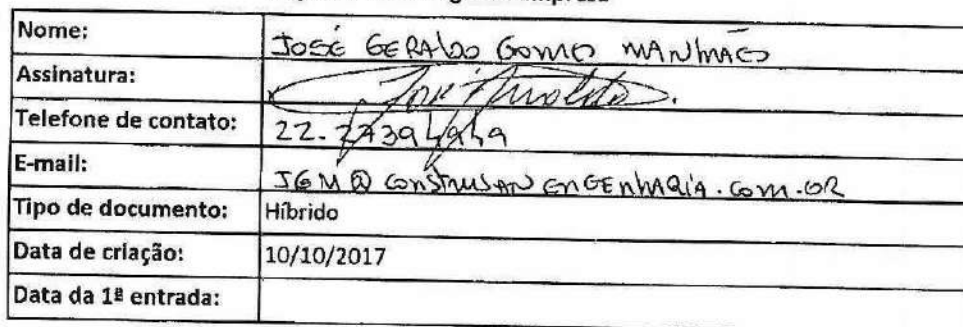 Nome: JOSÉ GERALDO GOMES MANHÃES
Assinatura:
Telefone de contato: 22. 27394949
E-mail: JGM@CONSTRUSANENGENHARIA.COM.BR
Tipo de documento: Híbrido
Data de criação: 10/10/2017
Data da 1ª entrada: